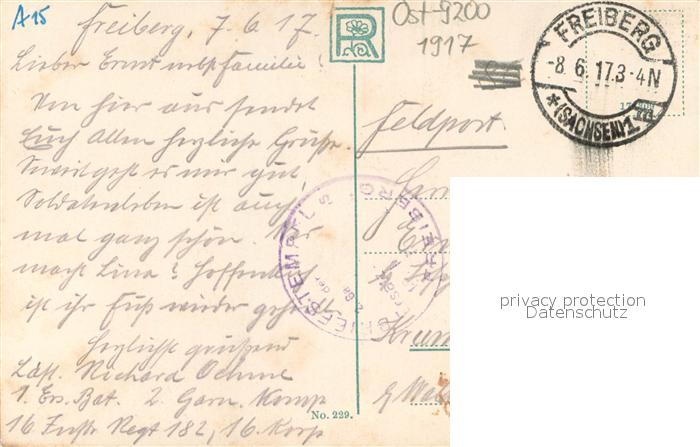 A15
Freiberg, 7.6.17.
Lieber Ernst nebst Familie!
Von hier aus sendet
Euch Allen herzliche Grüße.
Soweit geht es mir gut,
Soldatenleben ist auch
mal ganz schön. Was
macht Lina? Hoffentlich
ist ihr Fuß wieder geheilt
herzlichst grüßend
Richard Oehme
1. Ers. Bat. 2. Garn. Komp
16 Inftr Regt 182, 16. Korp
No. 229.
R
Ost-9200
1917
FREIBERG
-8.6.17.3-4N
*(SACHSEN)1
Feldpost.
BRIEFSTEMPEL
FREIBERG
privacy protection
Datenschutz